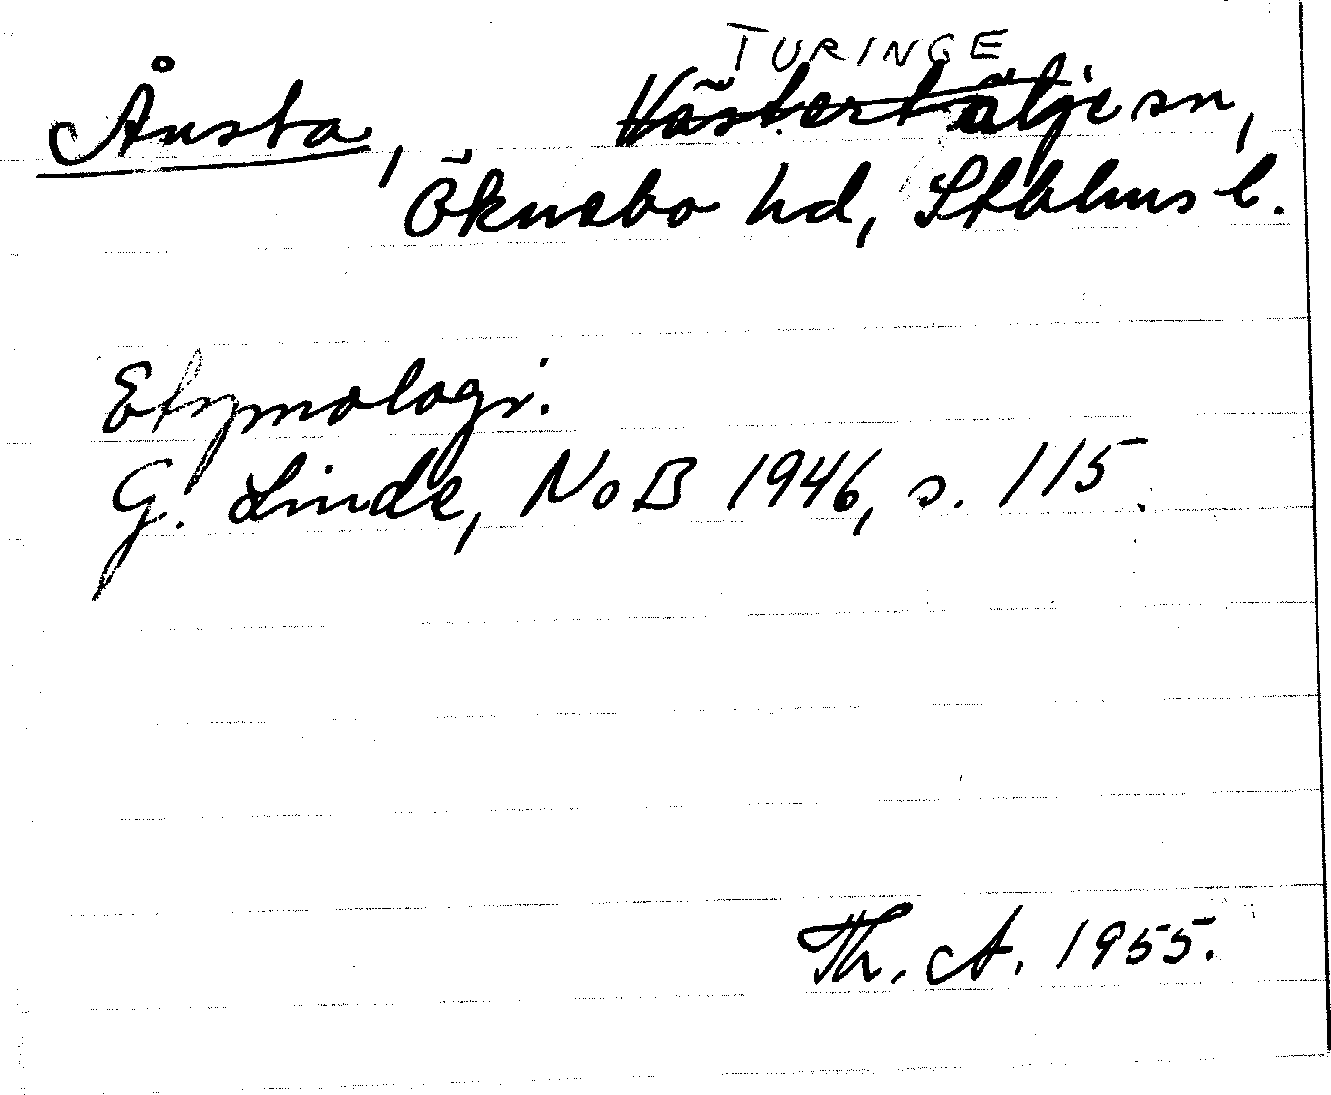 TURINGE
Ånsta, Västertälje sn,
Öknebo hd, Sthlms l.
Etymologi.
G. Linde, NoB 1946, s. 115.
Th. A. 1955.